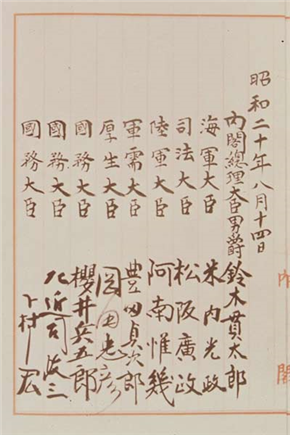 昭和二十年八月十四日
内閣總理大臣男爵鈴木貫太郎
海軍大臣 米内光政
司法大臣 松阪廣政
陸軍大臣 阿南惟幾
軍需大臣 豊田貞次郎
厚生大臣 岡田忠彦
國務大臣 櫻井兵五郎
國務大臣 左近司政三
國務大臣 下村宏
内閣